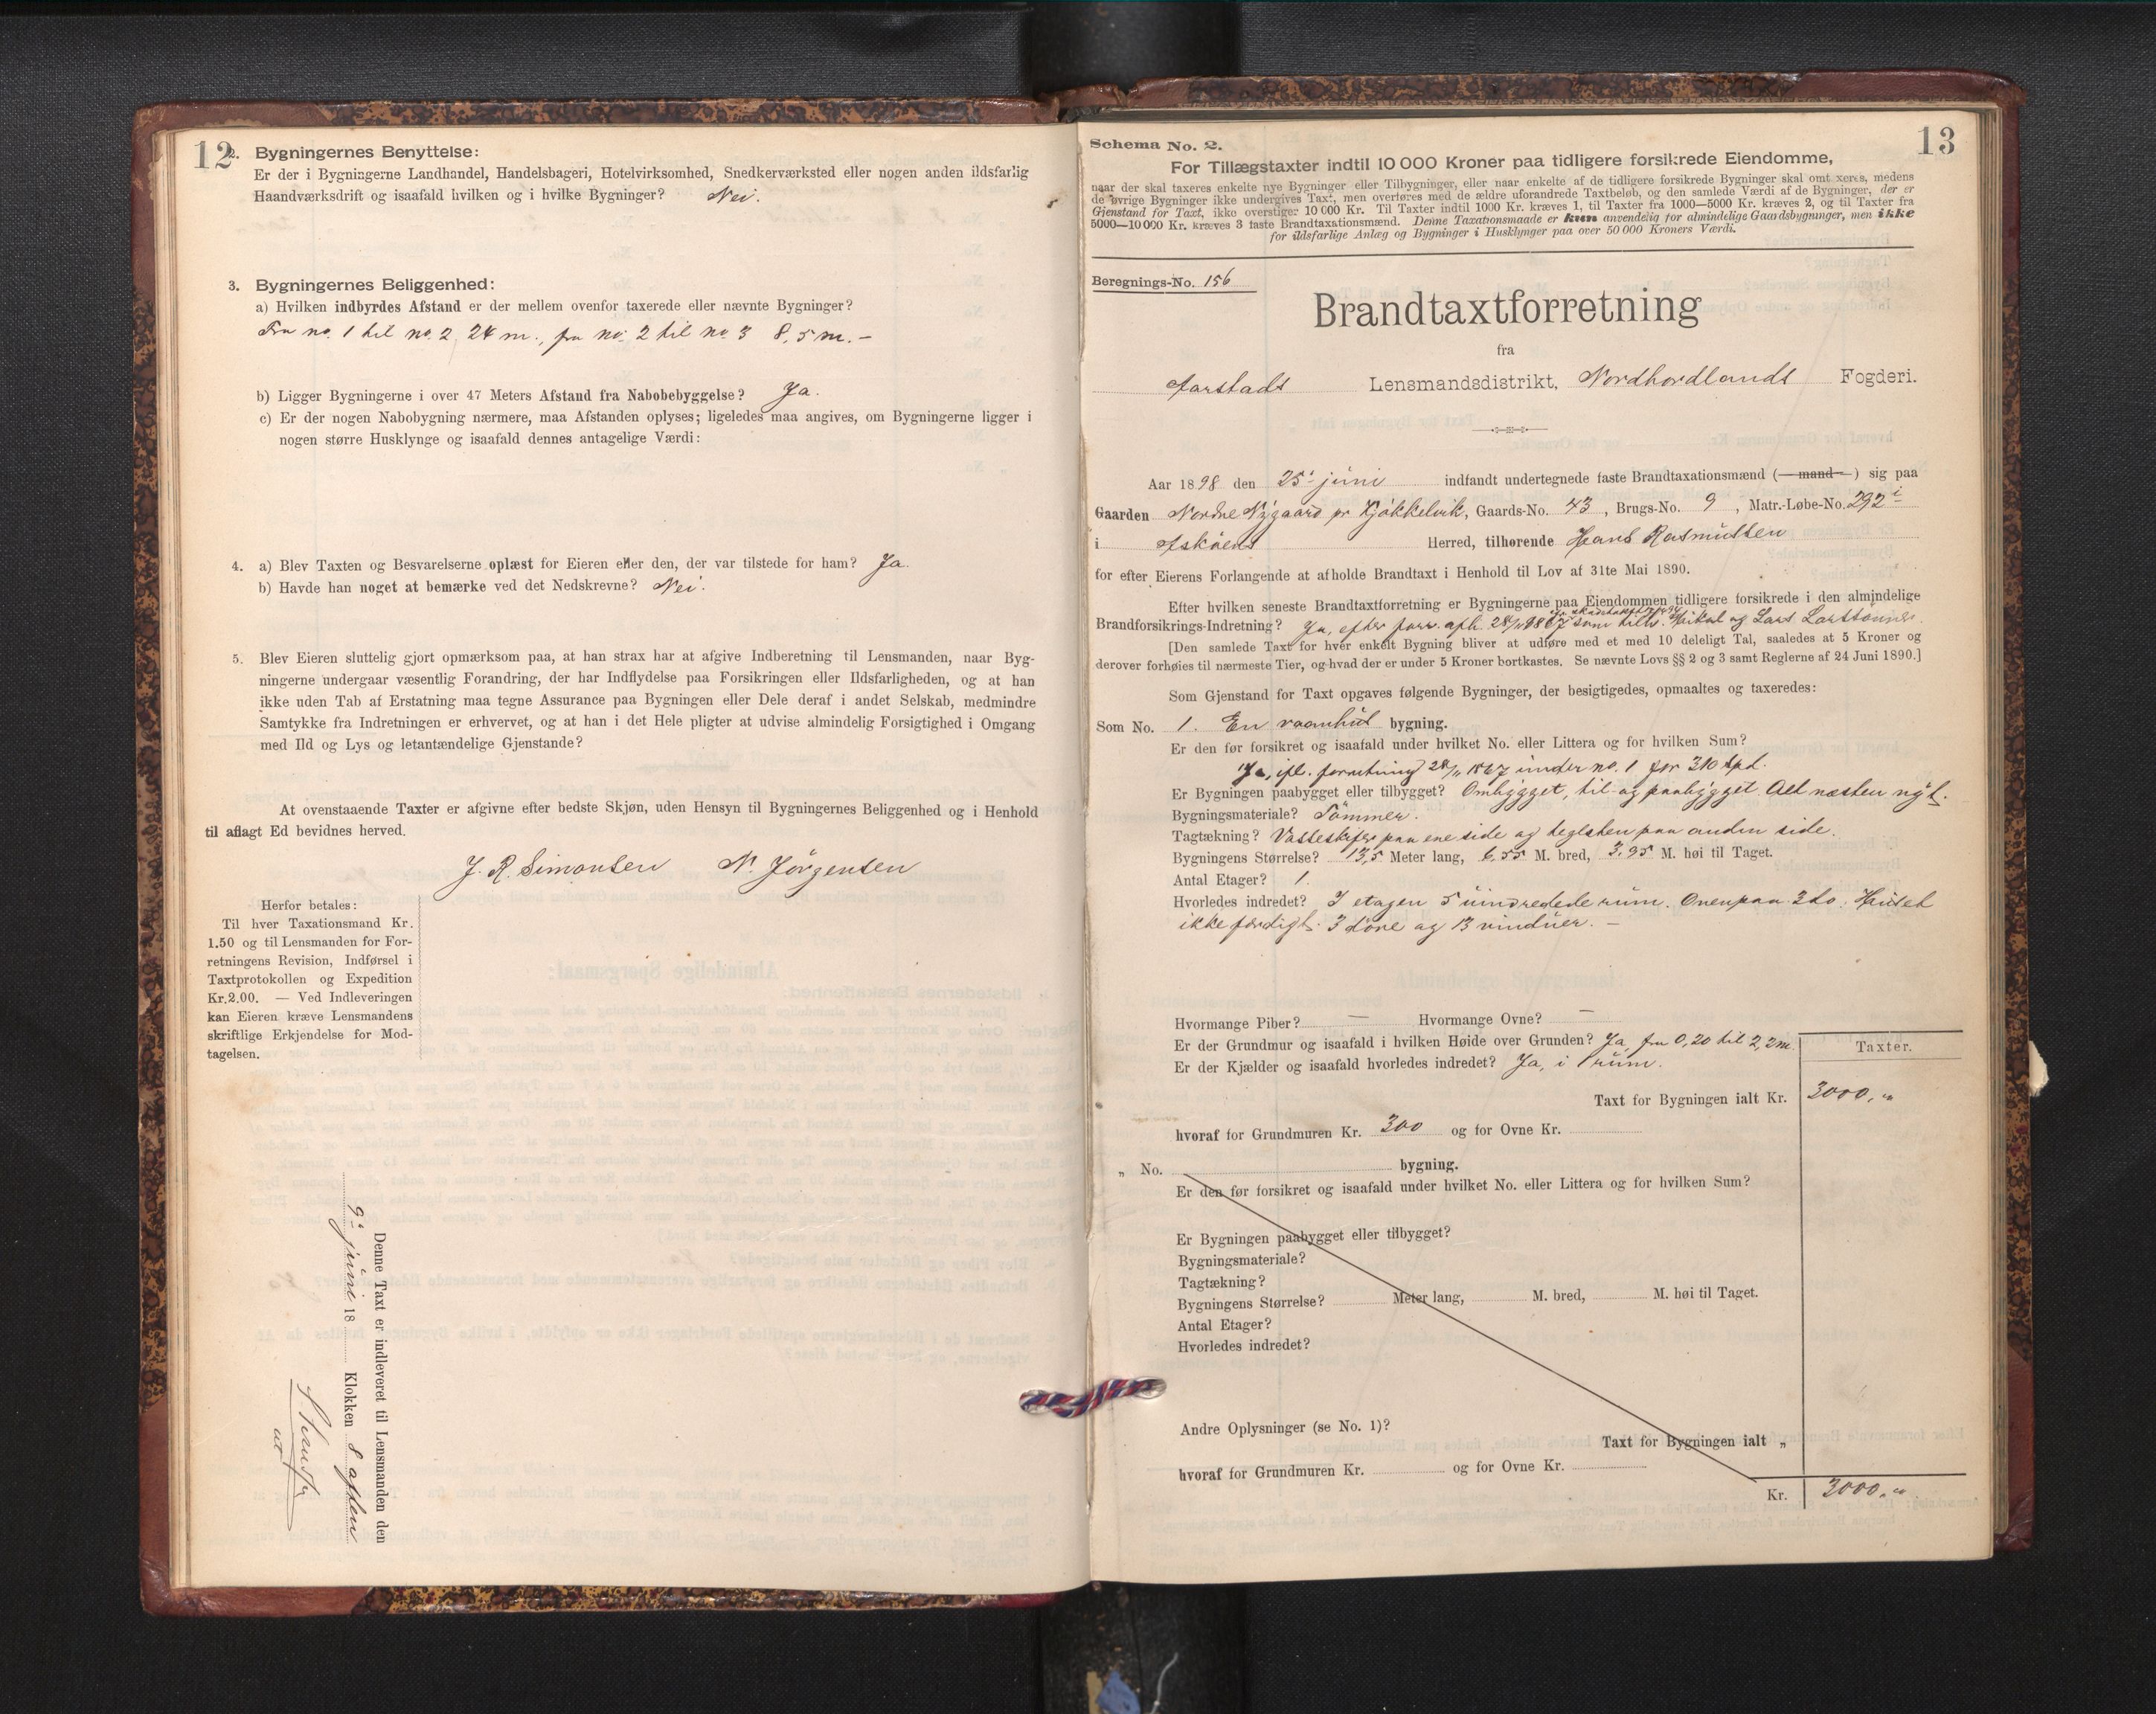 12
2. Bygningernes Benyttelse:
Er der i Bygningerne Landhandel, Handelsbageri, Hotelvirksomhed, Snedkerværksted eller nogen anden ildsfarlig
Haandværksdrift og isaafald hvilken og i hvilke Bygninger? Nei.
3. Bygningernes Beliggenhed:
a) Hvilken indbyrdes Afstand er der mellem ovenfor taxerede eller nævnte Bygninger?
Fra no. 1 til no. 2 24 m., fra no. 2 til no 3 8,5 m. –
b) Ligger Bygningerne i over 47 Meters Afstand fra Nabobebyggelse? Ja.
c) Er der nogen Nabobygning nærmere, maa Afstanden oplyses; ligeledes maa angives, om Bygningerne ligger i
nogen større Husklynge og isaafald dennes antagelige Værdi:
4. a) Blev Taxten og Besvarelserne oplæst for Eieren eller den, der var tilstede for ham? Ja.
b) Havde han noget at bemærke ved det Nedskrevne? Nei.
5. Blev Eieren sluttelig gjort opmærksom paa, at han strax har at afgive Indberetning til Lensmanden, naar Byg-
ningerne undergaar væsentlig Forandring, der har Indflydelse paa Forsikringen eller Ildsfarligheden, og at han
ikke uden Tab af Erstatning maa tegne Assurance paa Bygningen eller Dele deraf i andet Selskab, medmindre
Samtykke fra Indretningen er erhvervet, og at han i det Hele pligter at udvise almindelig Forsigtighed i Omgang
med Ild og Lys og letantændelige Gjenstande?
At ovenstaaende Taxter er afgivne efter bedste Skjøn, uden Hensyn til Bygningernes Beliggenhed og i Henhold
til aflagt Ed bevidnes herved.
J. R. Simonsen N. Jörgensen
Herfor betales:
Til hver Taxationsmand Kr.
1.50 og til Lensmanden for For-
retningens Revision, Indførsel i
Taxtprotokollen og Expedition
Kr. 2.00. — Ved Indleveringen
kan Eieren kræve Lensmandens
skriftlige Erkjendelse for Mod-
tagelsen.
Denne Taxt er indleveret til Lensmanden den
9' juni 18 Klokken 8 aften
13
Schema No. 2.
For Tillægstaxter indtil 10 000 Kroner paa tidligere forsikrede Eiendomme,
naar der skal taxeres enkelte nye Bygninger eller Tilbygninger, eller naar enkelte af de tidligere forsikrede Bygninger skal omtaxeres, medens
de øvrige Bygninger ikke undergives Taxt, men overføres med de ældre uforandrede Taxtbeløb, og den samlede Værdi af de Bygninger, der er
Gjenstand for Taxt, ikke overstiger 10 000 Kr. Til Taxter indtil 1000 Kr. kræves 1, til Taxter fra 1000—5000 Kr. kræves 2, og til Taxter fra
5000—10 000 Kr. kræves 3 faste Brandtaxationsmænd. Denne Taxationsmaade er kun anvendelig for almindelige Gaardsbygninger, men ikke
for ildsfarlige Anlæg og Bygninger i Husklynger paa over 50 000 Kroners Værdi.
Beregnings-No. 156
Brandtaxtforretning
fra
Aarstads Lensmandsdistrikt, Nordhordlands Fogderi.
Aar 1898 den 25' juni indfandt undertegnede faste Brandtaxationsmænd (—mand—) sig paa
Gaarden Nordre Nygaard pr Kjökkelvik, Gaards-No. 43, Brugs-No. 9, Matr.-Løbe-No. 292 i
i Asköens Herred, tilhørende Hans Rasmussen
for efter Eierens Forlangende at afholde Brandtaxt i Henhold til Lov af 31te Mai 1890.
Efter hvilken seneste Brandtaxtforretning er Bygningerne paa Eiendommen tidligere forsikrede i den almindelige
Brandforsikrings-Indretning? Ja, efter forr. afh. 28/11 1867 som tilh. Mikal og Lars Larssönner.
[Den samlede Taxt for hver enkelt Bygning bliver at udføre med et med 10 deleligt Tal, saaledes at 5 Kroner og
derover forhøies til nærmeste Tier, og hvad der er under 5 Kroner bortkastes. Se nævnte Lovs §§ 2 og 3 samt Reglerne af 24 Juni 1890.]
Som Gjenstand for Taxt opgaves følgende Bygninger, der besigtigedes, opmaaltes og taxeredes:
Som No. 1. En vaanhus bygning.
Er den før forsikret og isaafald under hvilket No. eller Littera og for hvilken Sum?
Ja, ifl. forretning 28/11 1867 under no. 1 for 310 spd.
Er Bygningen paabygget eller tilbygget? Ombygget, til- og paabygget. Alt næsten nyt.
Bygningsmateriale? Tömmer.
Tagtækning? Vasteskifer paa ene side og teglsten paa anden side.
Bygningens Størrelse? 13,5 Meter lang, 6,55 M. bred, 3,95 M. høi til Taget.
Antal Etager? 1.
Hvorledes indret? I etagen 5 uindredede rum. Ovenpaa 3 do. Huset
ikke færdigt. 3 döre og 13 vinduer. –
Hvormange Piber? — Hvormange Ovne? —
Er der Grundmur og isaafald i hvilken Høide over Grunden? Ja, fra 0,20 til 2,2 m.
Er der Kjælder og isaafald hvorledes indredet? Ja, i 1 rum.
Taxter.
Taxt for Bygningen ialt Kr. 3000, "
hvoraf for Grundmuren Kr. 300 og for Ovne Kr.
„ No. bygning.
Er den før forsikret og isaafald under hvilket No. eller Littera og for hvilken Sum?
Er Bygningen paabygget eller tilbygget?
Bygningsmateriale?
Tagtækning?
Bygningens Størrelse? Meter lang, M. bred, M. høi til Taget.
Antal Etager?
Hvorledes indredet?
Andre Oplysninger (se No. 1)?
Taxt for Bygningen ialt „
hvoraf for Grundmuren Kr. og for Ovne Kr.
Kr. 3000, "